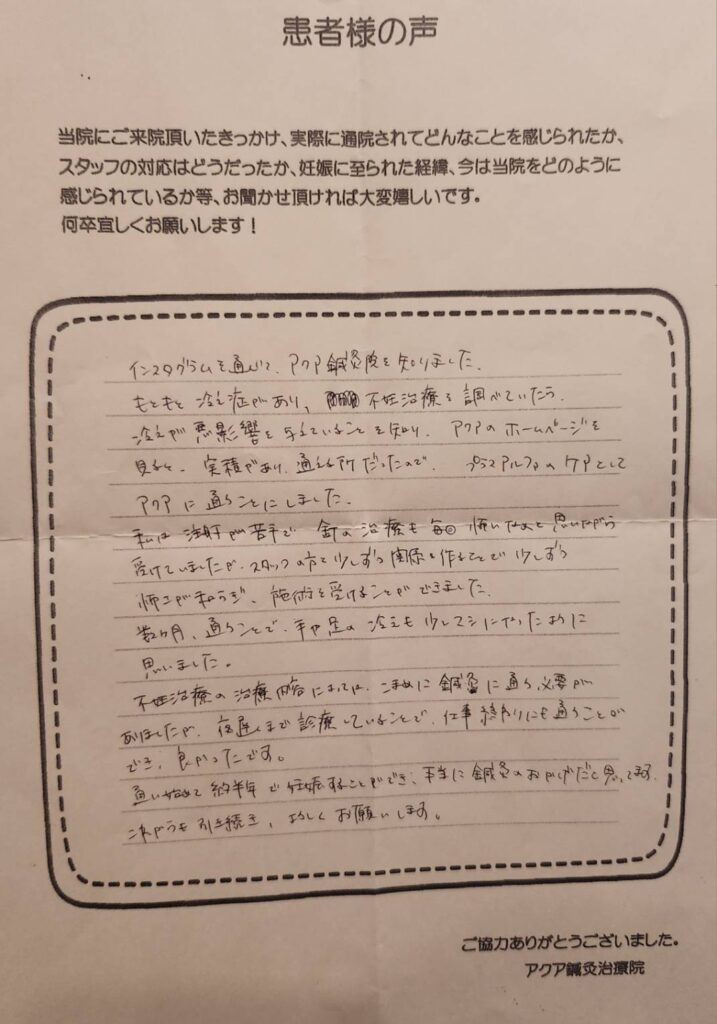 患者様の声
当院にご来院頂いたきっかけ、実際に通院されてどんなことを感じられたか、
スタッフの対応はどうだったか、妊娠に至られた経緯、今は当院をどのように
感じられているか等、お聞かせ頂ければ大変嬉しいです。
何卒宜しくお願いします！
インスタグラムを通じて、アクア鍼灸院を知りました。
もともと冷え症があり、不妊治療を調べていたら、
冷えが悪影響を与えていることを知り、アクアのホームページを
見ると、実積があり、通える所だったので、プラスアルファのケアとして
アクアに通うことにしました。
私は注射が苦手で針の治療も毎回怖いなぁと思いながら
受けていましたが、スタッフの方と少しずつ関係を作ることで少しずつ
怖さが和らぎ、施術を受けることができました。
数ヶ月、通うことで、手や足の冷えも少しマシになったように
思いました。
不妊治療の治療内容によっては、こまめに鍼灸に通う必要が
ありましたが、夜遅くまで診療していることで、仕事終わりにも通うことが
でき、良かったです。
通い始めて約半年で妊娠することができ、本当に鍼灸のおかげだと思ってます。
これからも引き続き、よろしくお願いします。
ご協力ありがとうございました。
アクア鍼灸治療院